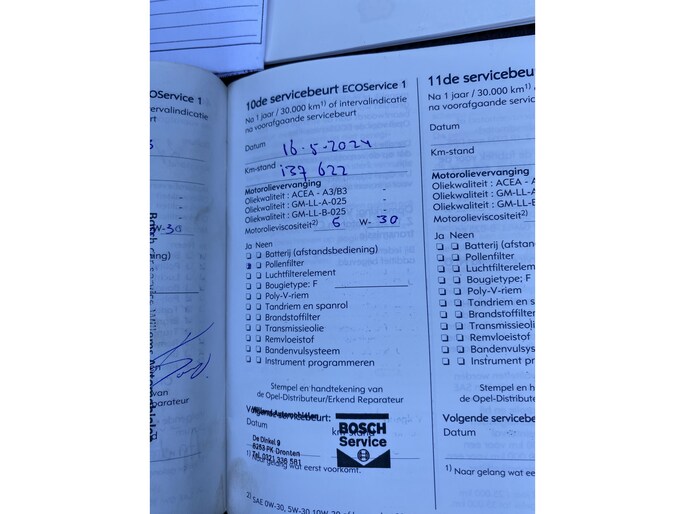 OService 1
ervalindicatie
W-30
van
parateur
10de servicebeurt ECOService 1
Na 1 jaar / 30.000 km1) of intervalindicatie
na voorafgaande servicebeurt
Datum 16-5-2024
Km-stand 137 622
Motorolievervanging
Oliekwaliteit : ACEA - A3/B3 -
Oliekwaliteit : GM-LL-A-025 -
Oliekwaliteit : GM-LL-B-025 -
Motorolieviscositeit2) 5 W- 30
Ja Neen
Batterij (afstandsbediening)
Pollenfilter
Luchtfilterelement
Bougietype: F
Poly-V-riem
Tandriem en spanrol
Brandstoffilter
Transmissieolie
Remvloeistof
Bandenvulsysteem
Instrument programmeren
Stempel en handtekening van
de Opel-Distributeur/Erkend Reparateur
Volgende servicebeurt:
Datum km-stand
De Dinkel 9
PK Dronten
Tel. 0321 336 581
BOSCH
Service
1) Naar gelang wat eerst voorkomt.
2) SAE 0W-30, 5W-30
11de servicebeur
Na 1 jaar / 30.000 km1)
na voorafgaande servic
Datum
Km-stand
Motorolievervanging
Oliekwaliteit : ACEA - A
Oliekwaliteit : GM-LL-A
Oliekwaliteit : GM-LL-B
Motorolieviscositeit2)
Ja Neen
Batterij (afstan
Pollenfilter
Luchtfilterelem
Bougietype; F
Poly-V-riem
Tandriem en s
Brandstoffilter
Transmissieoli
Remvloeistof
Bandenvulsyst
Instrument pr
Stempel en
de Opel-Distribute
Volgende servicebe
Datum
1) Naar gelang wat ee